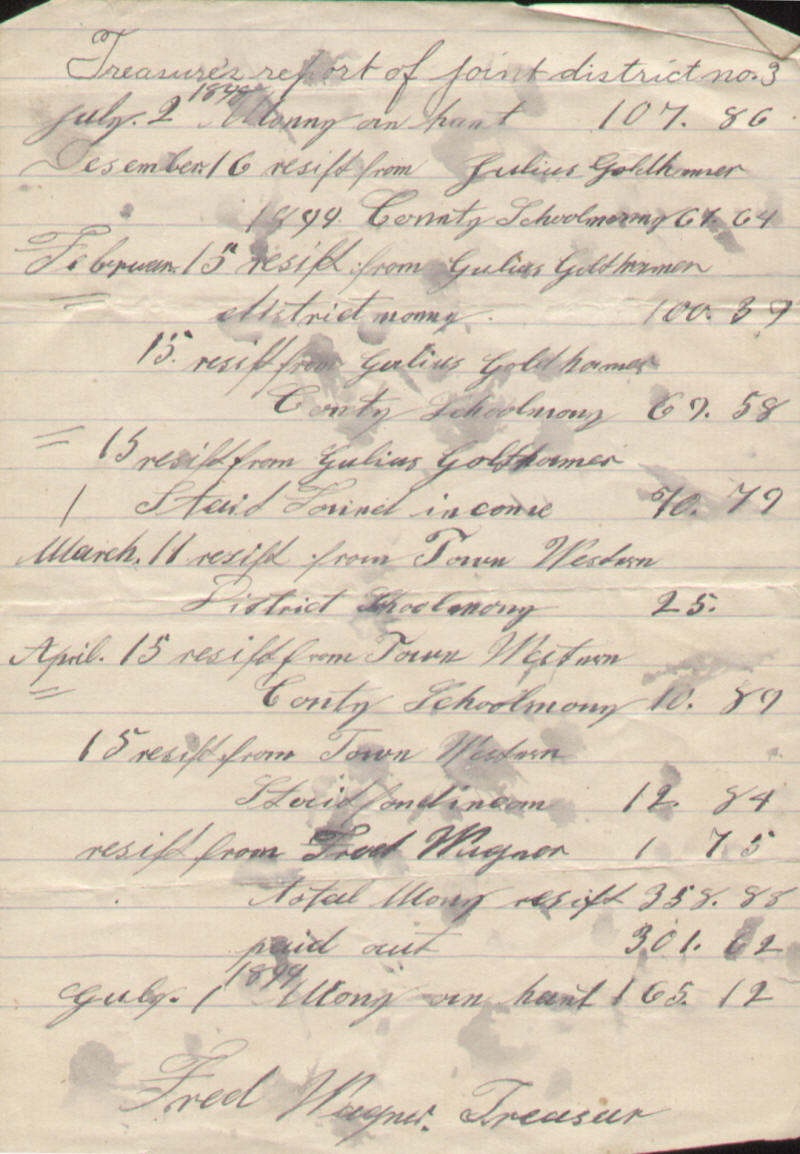 Treasure's report of joint district no. 3
July. 2 1898 Monny on hant 107. 86
Desember. 16 resift from Julius Goldhamer
1899. County Schoolmonny 67. 64
Februar. 15 resift from Gulius Goldhamer
= district monny. 100. 39
15. resift from Gulius Goldhamer
Conty Schoolmony 69. 58
= 15 resift from Gulius Goldhamer
1 Staid Found income 70. 79
March. 11 resift from Town Western
District Schoolmony 25.
April. 15 resift from Town Western
= Conty Schoolmony 10. 89
15 resift from Town Western
Staid fond incom 12. 84
resift from Fred Wagner 1 75
total Mony resift 358. 88
paid out 301. 62
Guly. 1 1899 Mony on hant 165. 12
Fred Wagner. Treasur